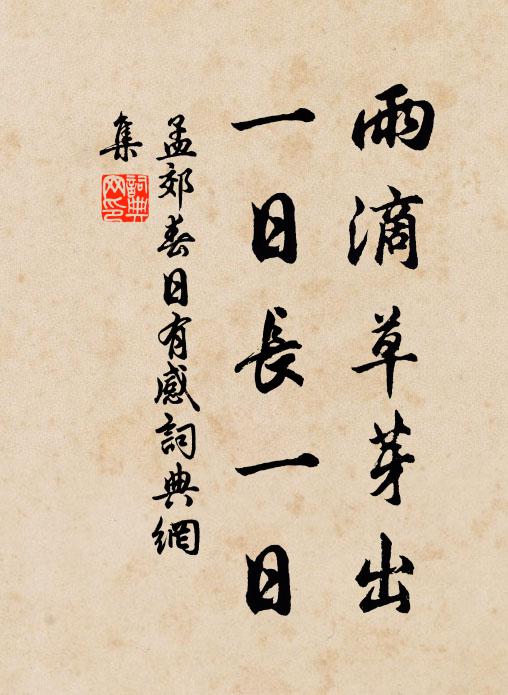 雨滴草芽出
一日長一日
孟郊春日有感詞典網
集
詞典
网印